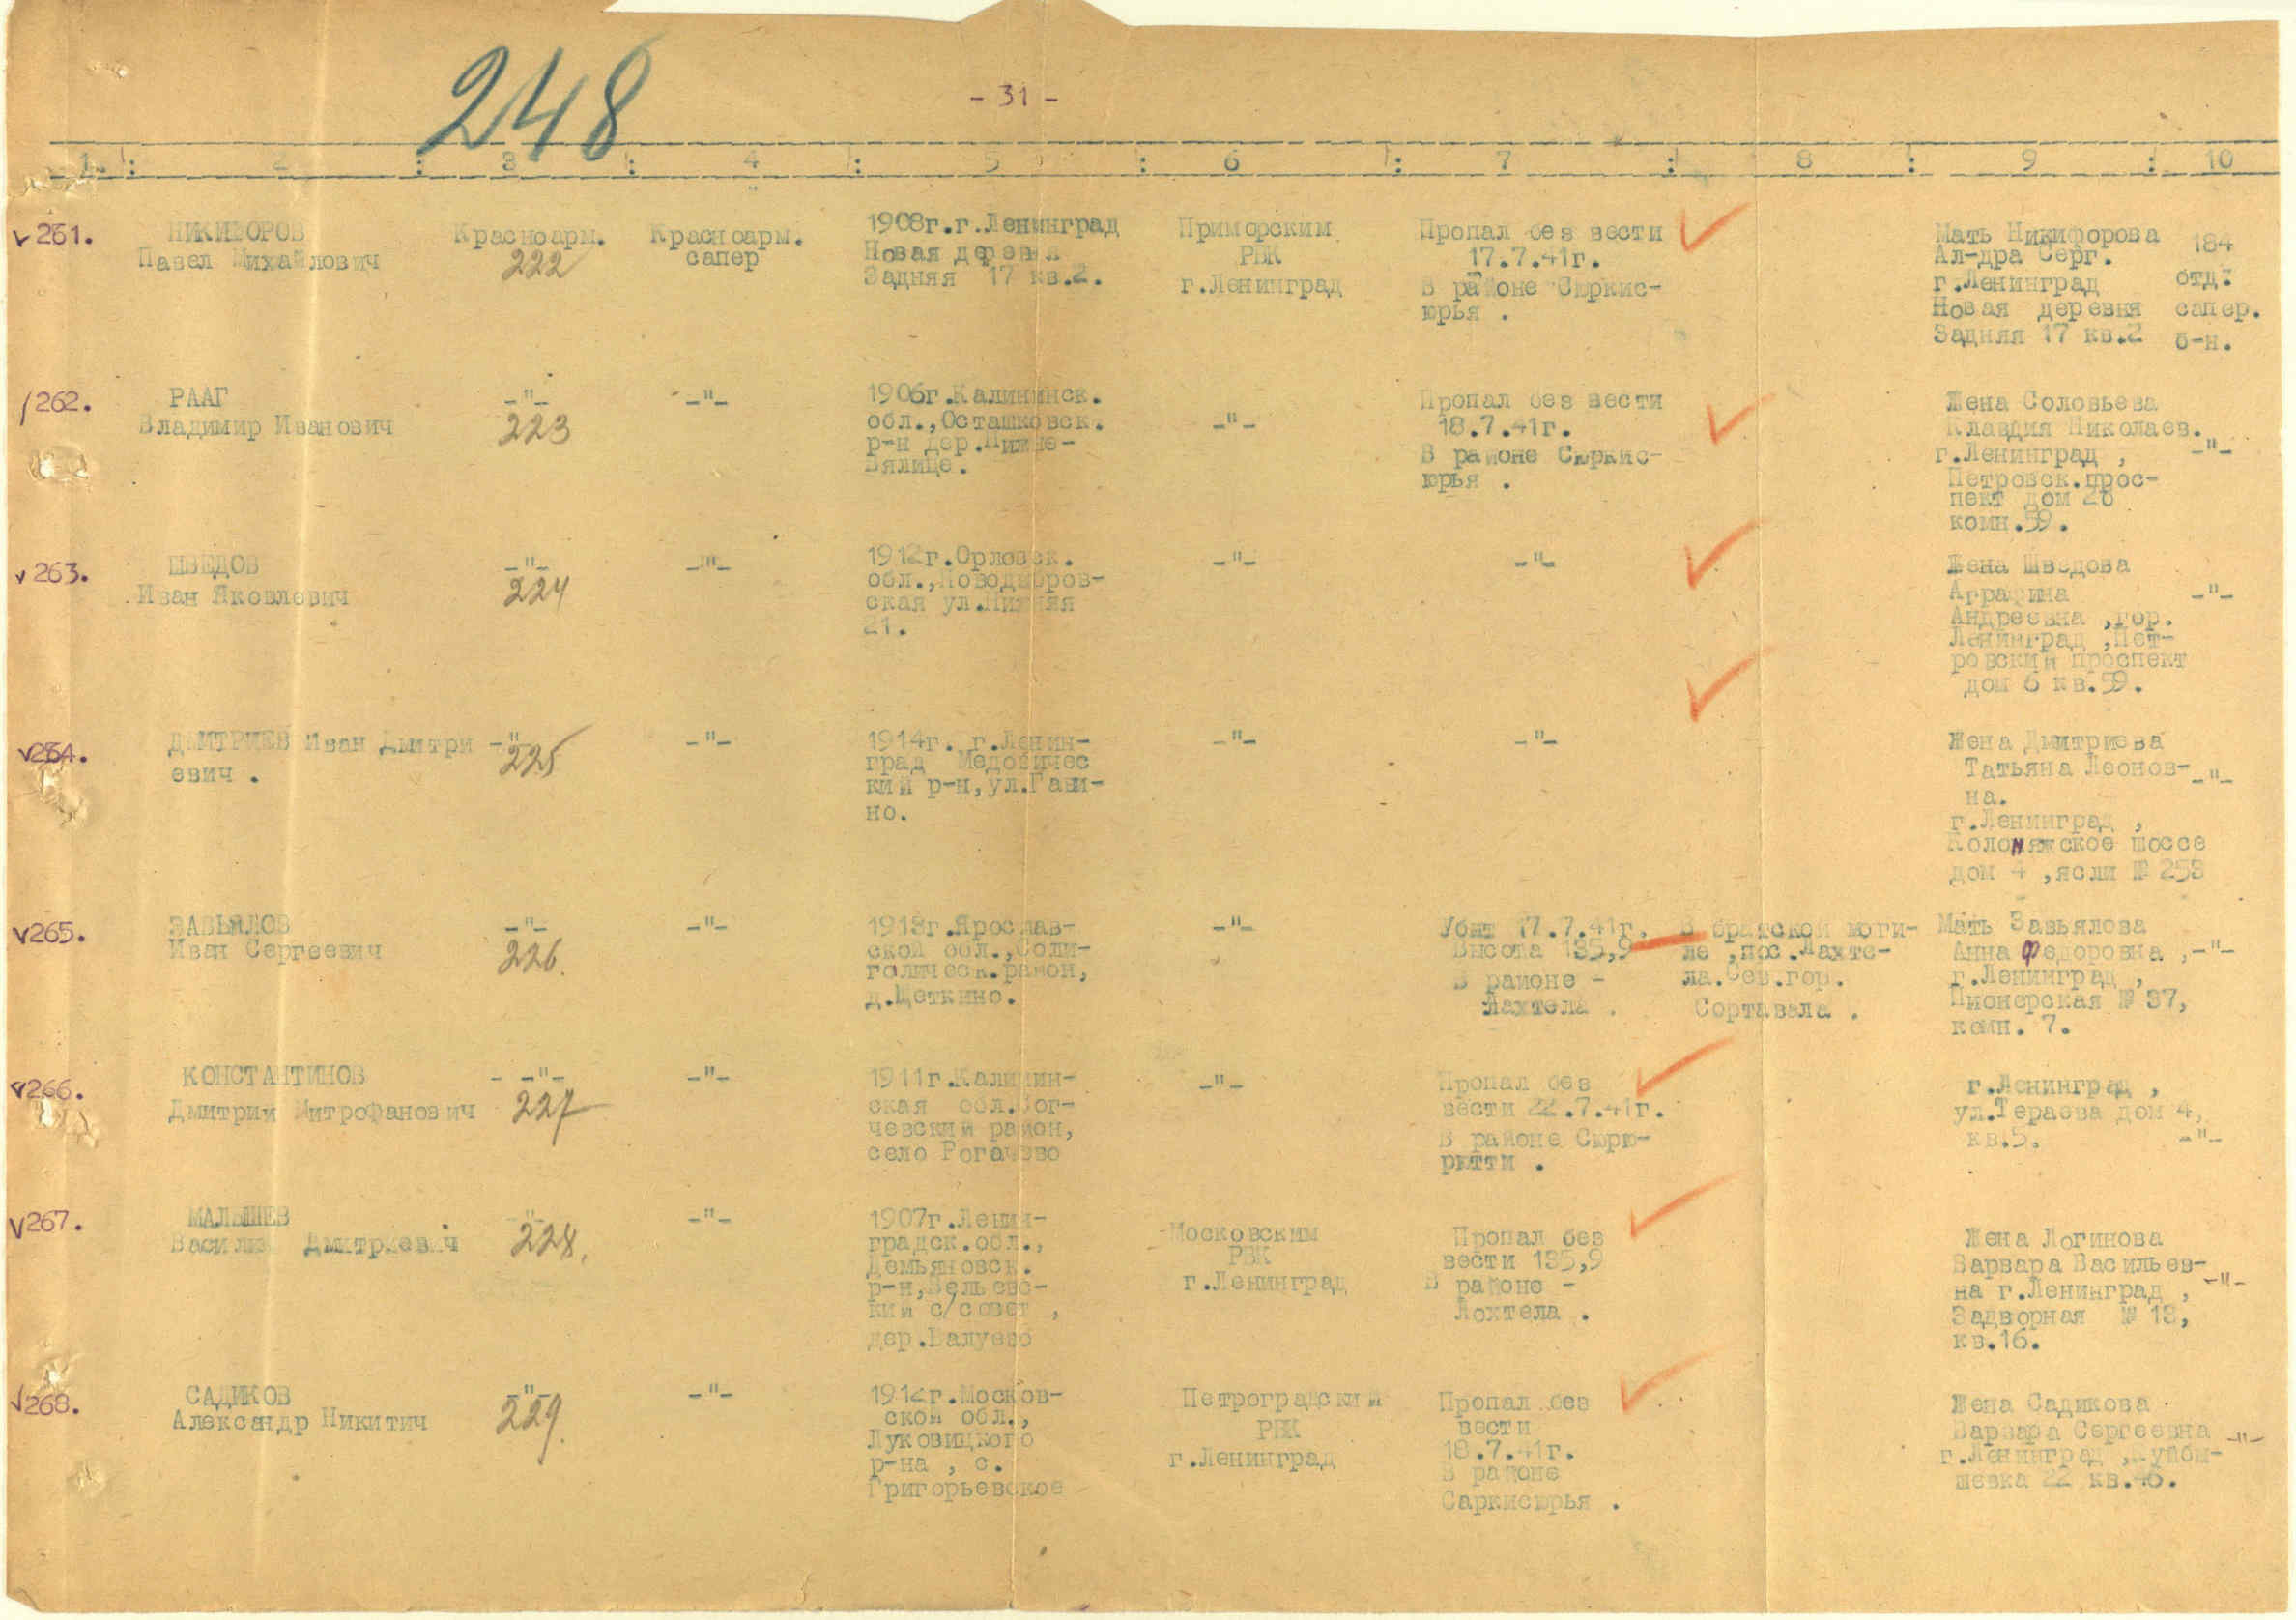 248
- 31 -
1. : 2 : 3 : 4 : 5 : 6 : 7 : 8 : 9 : 10
v 261.
НИКИФОРОВ
Павел Михайлович
Красноарм.
222
Красноарм.
сапер
1908г.г.Ленинград
Новая деревня
Задняя 17 кв.2.
Приморским
РВК
г.Ленинград
Пропал без вести
17.7.41г.
В районе Сюркис-
юрья .
Мать Никифорова
Ал-дра Серг.
г.Ленинград
Новая деревня
Задняя 17 кв.2
184
отд.
сапер.
б-н.
/262.
РААГ
Владимир Иванович
-"-
223
-"-
1906г.Калининск.
обл.,Осташковск.
р-н дер.Нижне-
Вялице.
-"-
Пропал без вести
18.7.41г.
В районе Сюркис-
юрья .
Жена Соловьева
Клавдия Николаев.
г.Ленинград ,
Петровск.прос-
пект дом 26
комн.59.
-"-
v 263.
ШВЕДОВ
Иван Яковлевич
-"-
224
-"-
1912г.Орловск.
обл.,
ская ул.Нижняя
21.
-"-
-"-
Жена Шведова
Аграфина
Андреевна ,гор.
Ленинград ,Пет-
ровский проспект
дом 6 кв.59.
-"-
v264.
ДМИТРИЕВ Иван Дмитри
евич .
-"-
225
-"-
1914г. г.Ленин-
град Медовичес
кий р-н,ул.Гави-
но.
-"-
-"-
Жена Дмитриева
Татьяна Леонов-
на.
г.Ленинград ,
Коломяжское шоссе
дом 4 ,ясли № 253
-"-
v265.
ЗАВЬЯЛОВ
Иван Сергеевич
-"-
226.
-"-
1918г.Ярослав-
ской обл.,Соли-
галическ.район,
д.Щеткино.
-"-
Убит 17.7.41г.
Высота 135,9
В районе -
Лахтела .
В братской моги-
ле ,пос.Лахте-
ла.Сев.гор.
Сортавала .
Мать Завьялова
Анна Федоровна ,-"-
г.Ленинград ,
Пионерская № 37,
комн. 7.
v266.
КОНСТАНТИНОВ
Дмитрий Митрофанович
-"-
227
-"-
1911г.Калинин-
ская обл.
чевский район,
село Рогачево
-"-
Пропал без
вести 22.7.41г.
В районе Сюрю-
рютти .
г.Ленинград ,
ул.Тераева дом 4,
кв.5. -"-
v267.
МАЛЫШЕВ
Василий Дмитриевич
-"-
228.
-"-
1907г.Ленин-
градск.обл.,
Демьяновск.
р-н,Вельевс-
кий с/совет ,
дер.Валуево
Московским
РВК
г.Ленинград
Пропал без
вести 135,9
В районе -
Лохтела .
Жена Логинова
Варвара Васильев-
на г.Ленинград ,
Задворная № 13,
кв.16.
-"-
v268.
САДИКОВ
Александр Никитич
-"-
229.
-"-
1912г.Москов-
ской обл.,
Луковицкого
р-на , с.
Григорьевское
Петроградский
РВК
г.Ленинград
Пропал без
вести
18.7.41г.
В районе
Саркисюрья .
Жена Садикова
Варвара Сергеевна
г.Ленинград ,Куйбы-
шевка 22 кв.46.
-"-